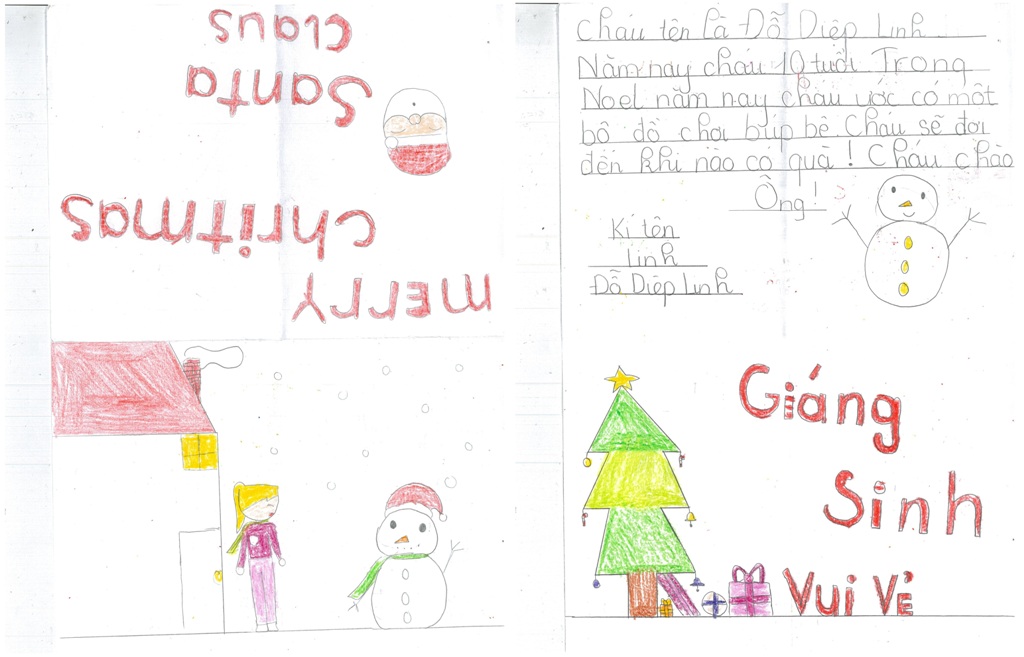 merry
chritmas
Santa
Claus
Cháu tên là Đỗ Diệp Linh
Năm nay cháu 10 tuổi Trong
Noel năm nay cháu ước có một
bộ đồ chơi búp bê. Cháu sẽ đợi
đến khi nào có quà! Cháu chào
Ông!
Kí tên
linh
Đỗ Diệp Linh
Giáng
Sinh
Vui Vẻ